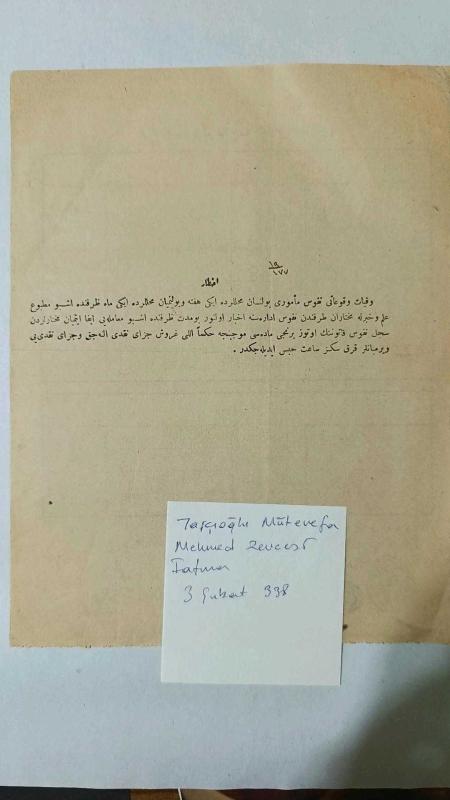 ١٩
١٧٧
اخطار
وفيات وقوعاتى نفوس مأمورى بولنسان محللرده ايكى هفته وبولنميان محللرده ايكى ماه ظرفنده اشبو مطبوع
علم وخبرله مختاران طرفندن نفوس اداره‌سنه اخبار اولنور بومدت ظرفنده اشبو معامله‌يى ايفا ايتميان مختارلردن
سجل نفوس قانوننك اوتوز برنجى ماده‌سى موجبنجه حكماً اللى غروش جزاى نقدى اله‌جق وجزاى نقدى‌يى
ويرميانلر قرق سكز ساعت حبس ايديله‌جكدر .
Taşçıoğlu Müteveffa
Mehmed Zevcesi
Fatma
3 Şubat 338